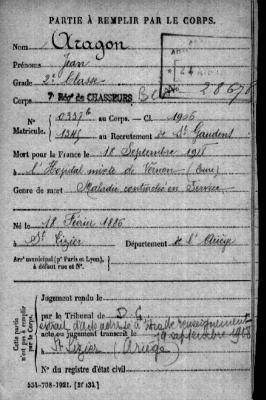 PARTIE À REMPLIR PAR LE CORPS.
Nom Aragon
Prénoms Jean
Grade 2e Classe
Corps 7e Régt de CHASSEURS
N° 0337 au Corps. — Cl. 1906
Matricule. 1345 au Recrutement de St Gaudens
Mort pour la France le 18 Septembre 1918
à l'Hopital mixte de Vernon (Eure)
Genre de mort Maladie contractée en Service
Né le 18 Février 1886
à St Lizier Département de l'Ariège
Arrt municipal (pr Paris et Lyon),
à défaut rue et N°.
Cette partie
n'est pas à remplir
par le Corps.
Jugement rendu le
par le Tribunal de
acte ou jugement transcrit le 19 septembre 1918
à St Lizier (Ariège)
N° du registre d'état civil
534-708-1921. [26434.]